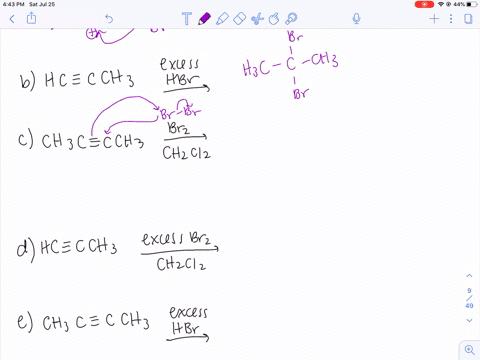 4:43 PM Sat Jul 25
44%
Br
b) HC≡CCH3 excess HBr
Br
H3C-C-CH3
Br
Br-Br
c) CH3C≡CCH3 Br2
CH2Cl2
d) HC≡CCH3 excess Br2
CH2Cl2
e) CH3C≡CCH3 excess HBr
9
/
49